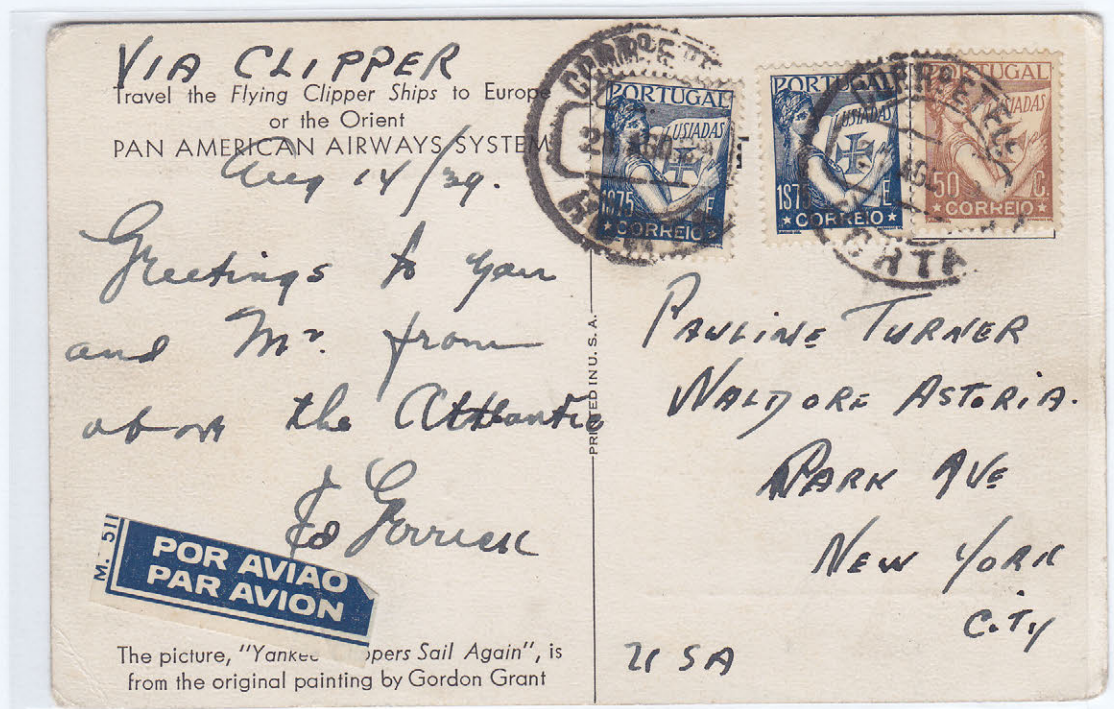 VIA CLIPPER
Travel the Flying Clipper Ships to Europe
or the Orient
PAN AMERICAN AIRWAYS SYSTEM
Aug 14/39.
Greetings to you
and Mr. from
above the Atlantic
Ed
M. 511
POR AVIAO
PAR AVION
The picture, "Yankee Clippers Sail Again", is
from the original painting by Gordon Grant
PRINTED IN U. S. A.
PORTUGAL
LUSIADAS
1$75 E
CORREIO
PORTUGAL
LUSIADAS
1$75 E
CORREIO
LUSIADAS
50 C.
CORREIO
HORTA
PAULINE TURNER
WALDORF ASTORIA.
PARK AVE
NEW YORK
CITY
USA